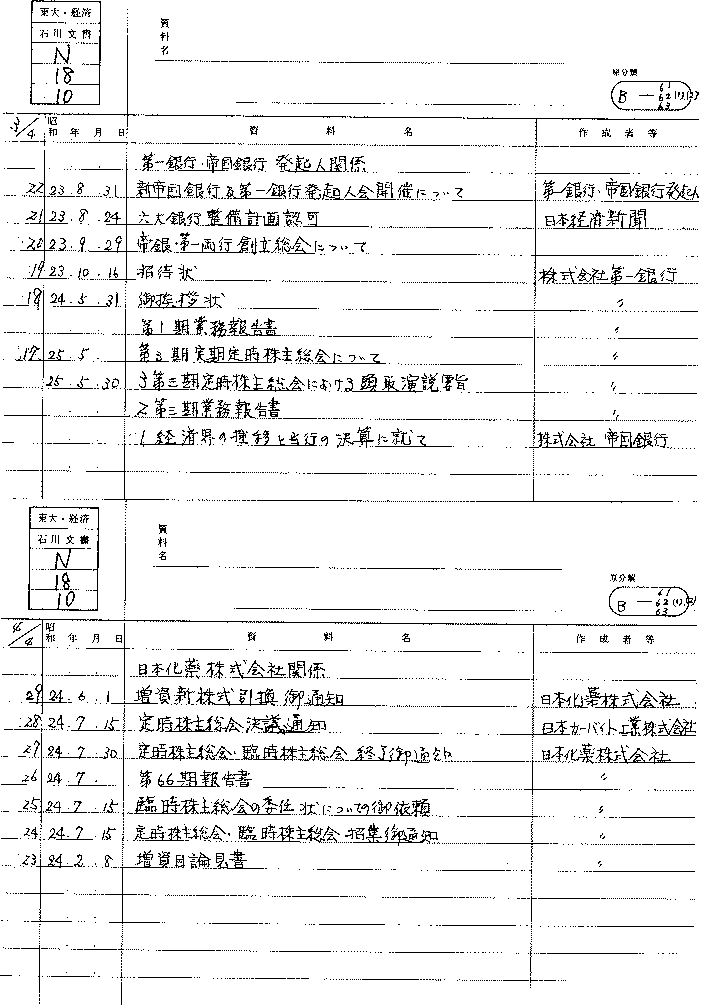 東大・経済
石川文書
N
18
10
資料名
原分類
B — 61 62(1),(2) 63
3/4 昭和 年 月 日 資料名 作成者等
第一銀行・帝国銀行 発起人関係
22 23.8.31 新帝国銀行及第一銀行発起人会開催について 第一銀行・帝国銀行発起人
21 23.8.24 六大銀行整備計画認可 日本経済新聞
20 23.9.29 帝銀・第一両行創立総会について
19 23.10.16 招待状 株式会社第一銀行
18 24.5.31 御挨拶状 〃
第1期業務報告書 〃
17 25.5 第3期定期定時株主総会について 〃
25.5.30 3第三期定時株主総会における頭取演説要旨 〃
2第三期業務報告書 〃
1経済界の推移と当行の決算に就て 株式会社 帝国銀行
東大・経済
石川文書
N
18
10
資料名
原分類
B — 61 62(1),(2) 63
4/4 昭和 年 月 日 資料名 作成者等
日本化薬株式会社関係
29 24.6.1 増資新株式引換御通知 日本化薬株式会社
28 24.7.15 定時株主総会決議通知 日本カーバイト工業株式会社
27 24.7.30 定時株主総会・臨時株主総会 終了御通知 日本化薬株式会社
26 24.7. 第66期報告書 〃
25 24.7.15 臨時株主総会の委任状についての御依頼 〃
24 24.7.15 定時株主総会・臨時株主総会 招集御通知 〃
23 24.2.8 増資目論見書 〃